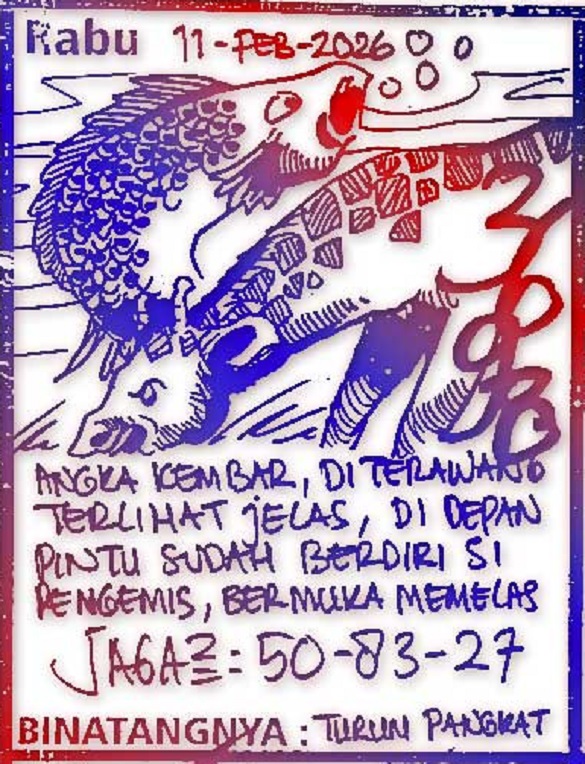 Rabu 11-FEB-2026
ANGKA KEMBAR, DI TERAWANG
TERLIHAT jELAS, DI DEPAN
PINTU SUDAH BERDIRI SI
PENGEMIS, BERMUKA MEMELAS
JAGA2=: 50-83-27
BINATANGNYA : TURUN PANGKAT